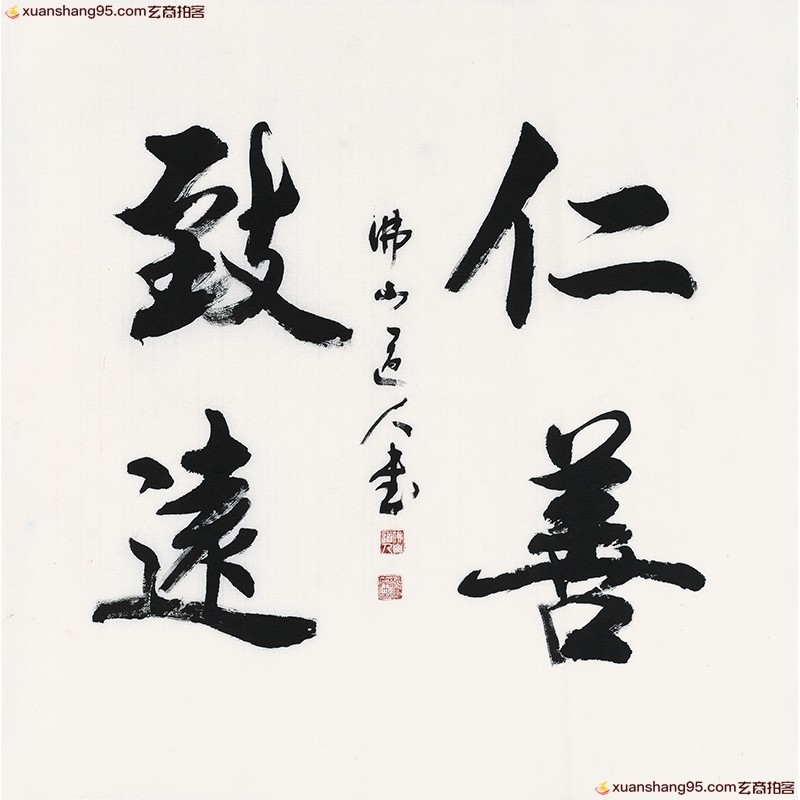 xuanshang95.com玄商拍客
仁善
致遠
佛山道人書
xuanshang95.com玄商拍客